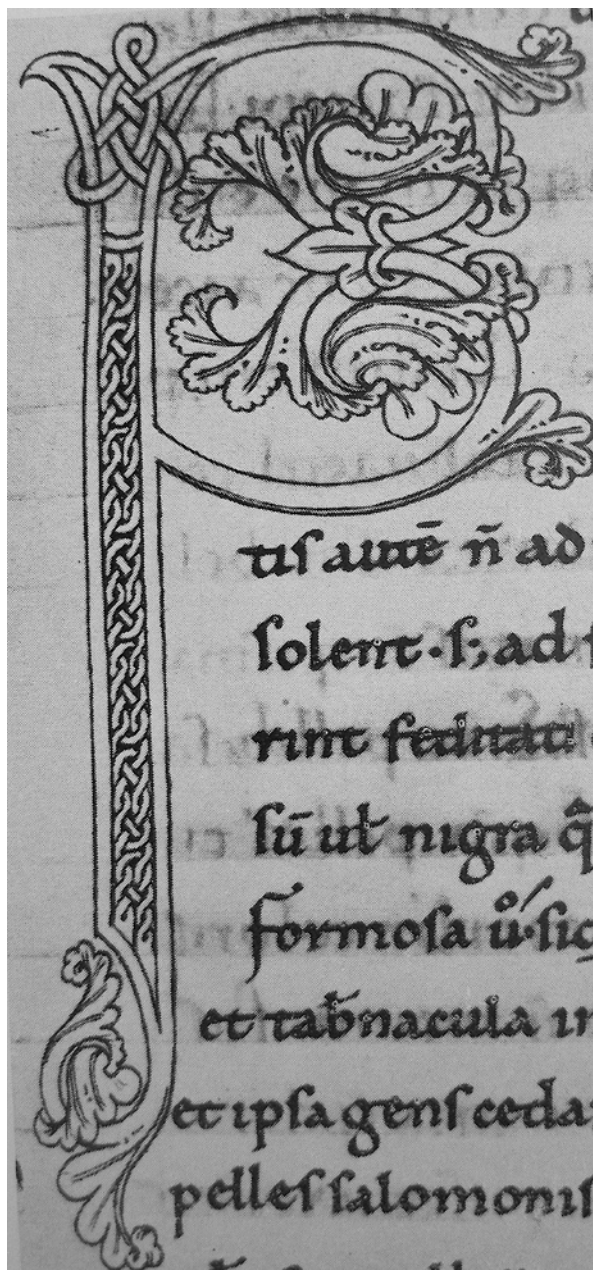 P
tiſ autē n̄ ad
ſolent · ſ; ad
rint feditati
ſū ul̵ nigra q̄
formoſa ů · ſic
et tab̵nacula in
et ipſa genſ ceda
pelleſ ſalomoniſ